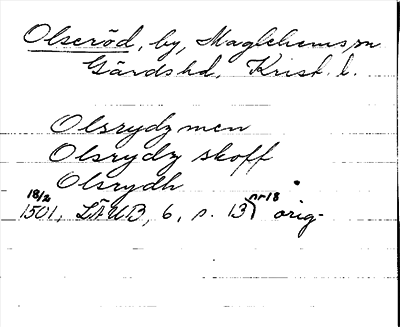 Olseröd, by, Maglehems sn
Gärds hd, Krist. l.
Olsrydz men
Olsrydz skoff
Olsrydh
18/2 nr 18
1501, LÄUB, 6, s. 13) orig-